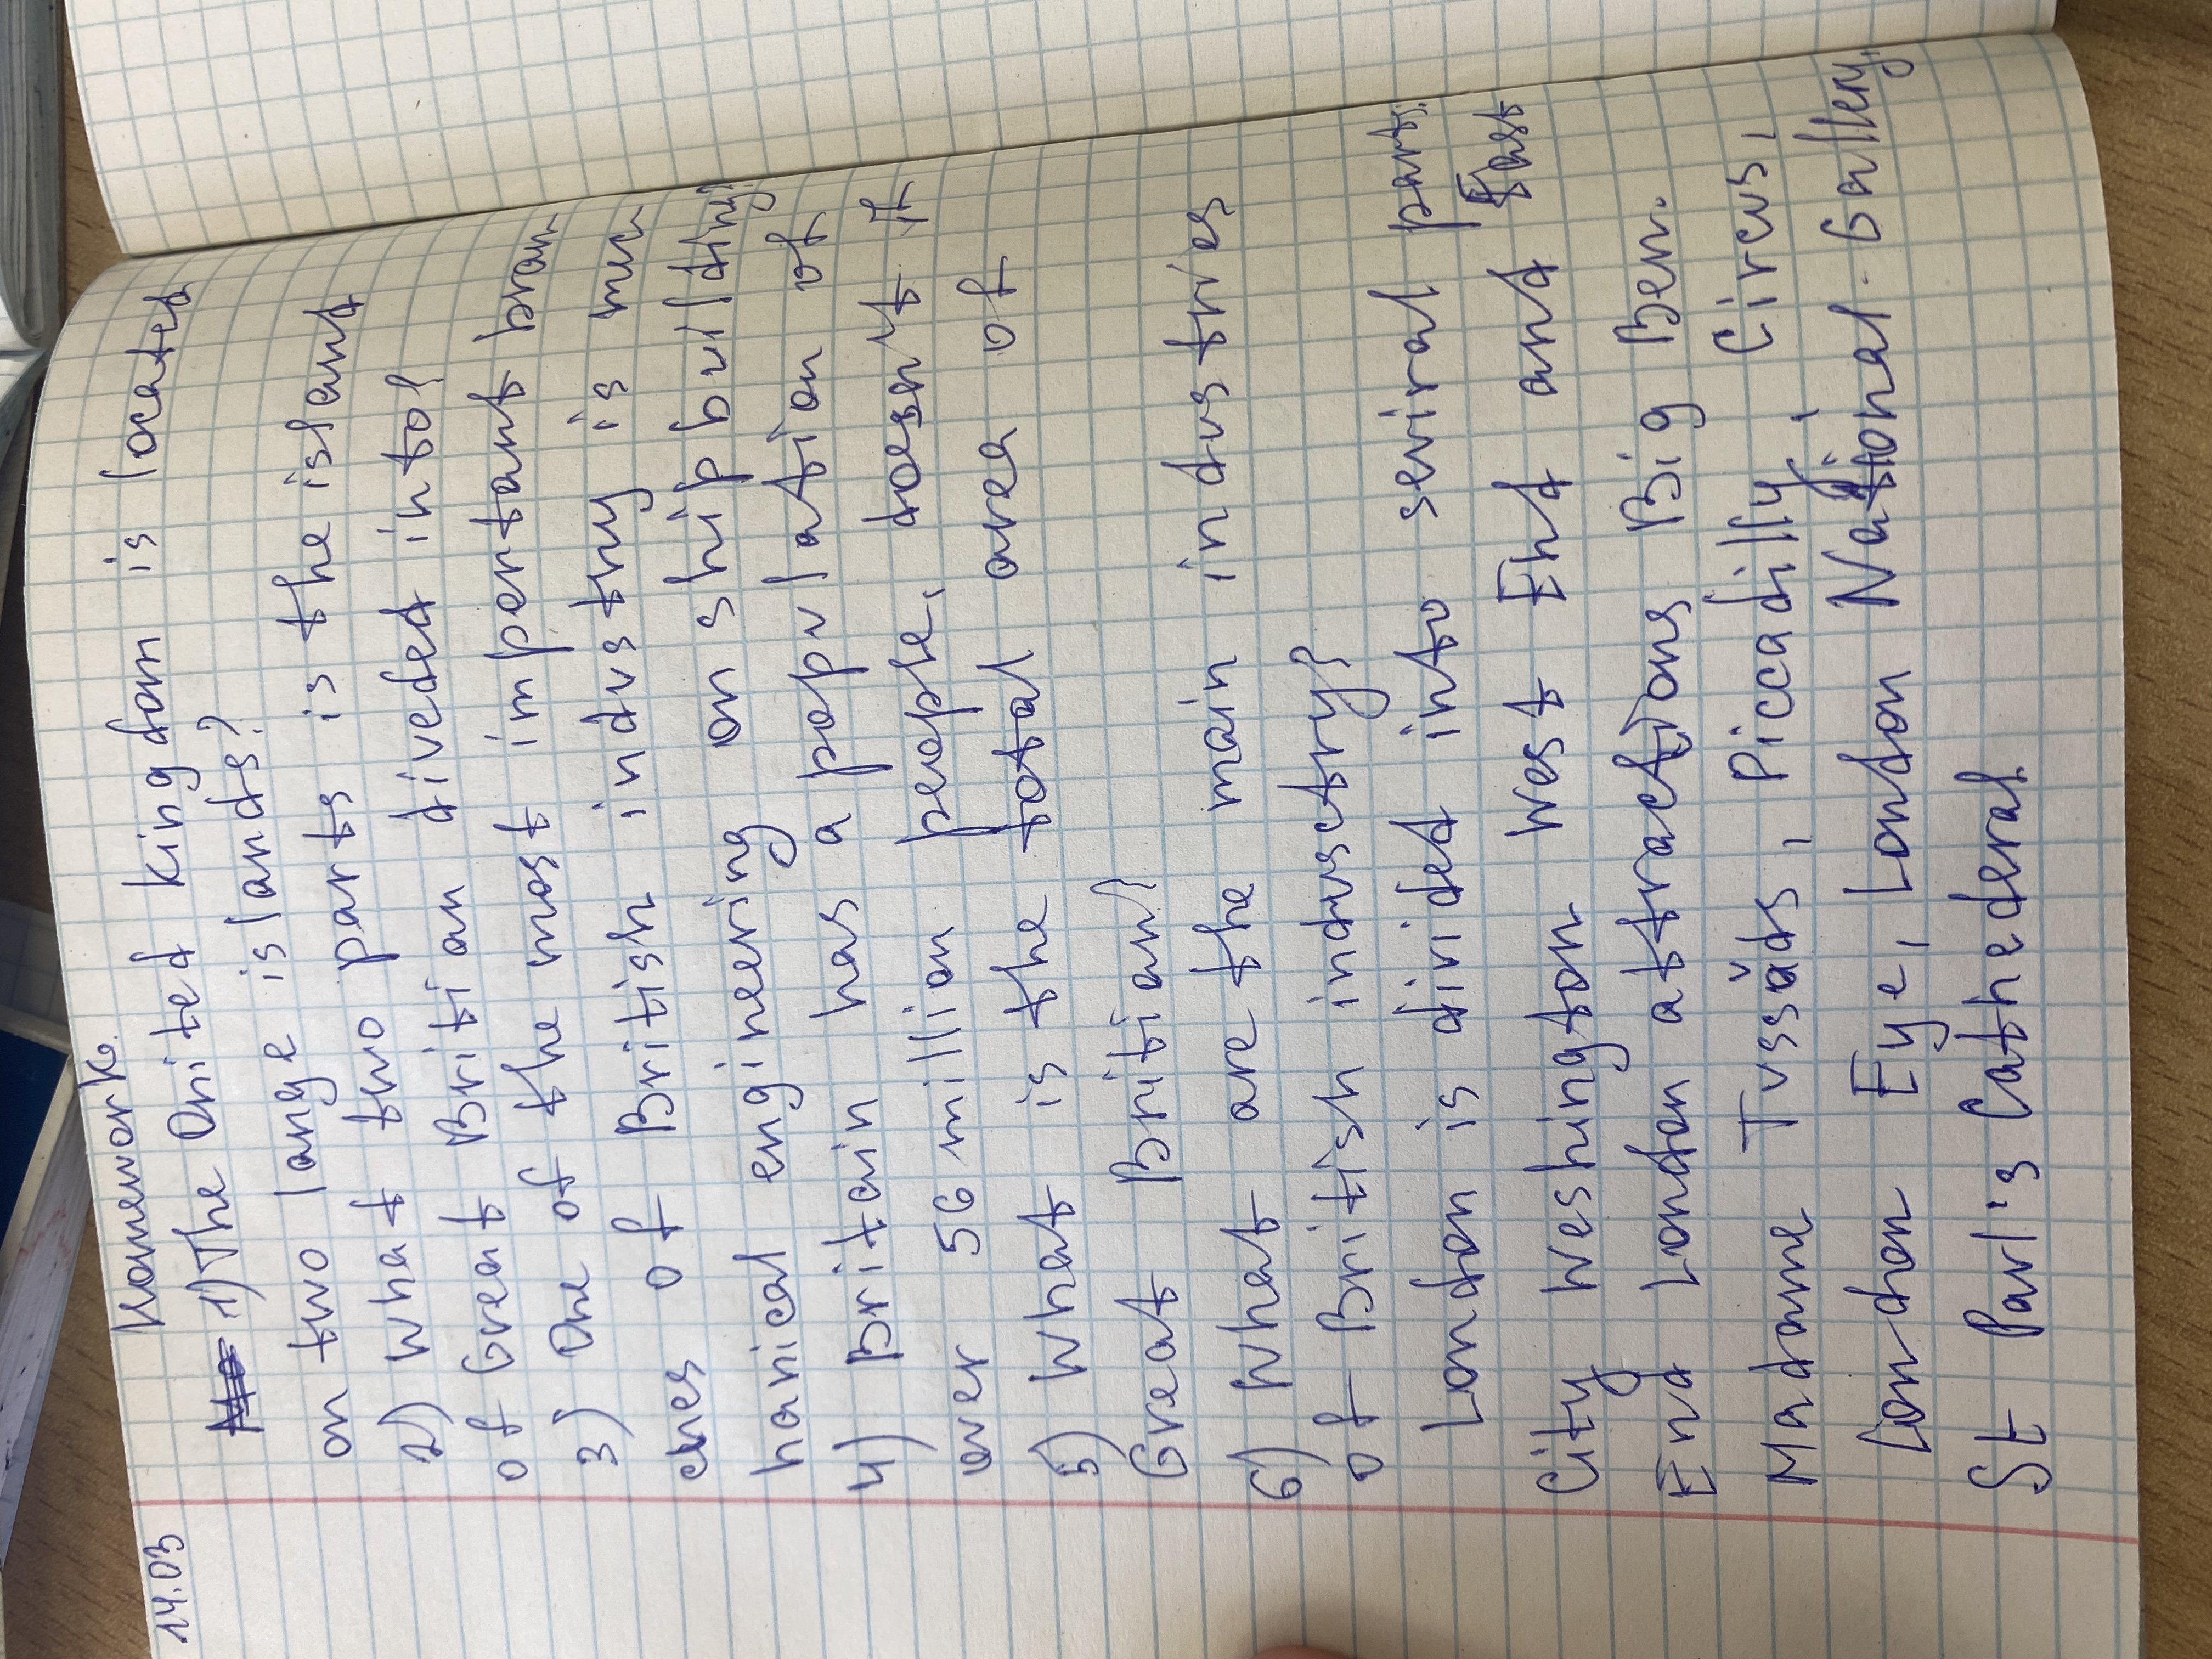 14.03 Homework.
1) The United kingdom is located
on two large islands?
2) What two parts is the island
of Great Britian diveded into?
3) One of the most impertant bran-
ches of British industry is mec
hanical engineering on shipbuilding.
4) Britain has a population of
over 56 million people, doesn't it
5) What is the total area of
Great Britian?
6) What are the main industries
of British indusctry?
London is divided into seviral parts:
City Weshington West End and East
End London attractions Big Ben.
Madame Tussads, Piccadilly, Circus,
London Eye, London National Gallery,
St Parl's Cathederal